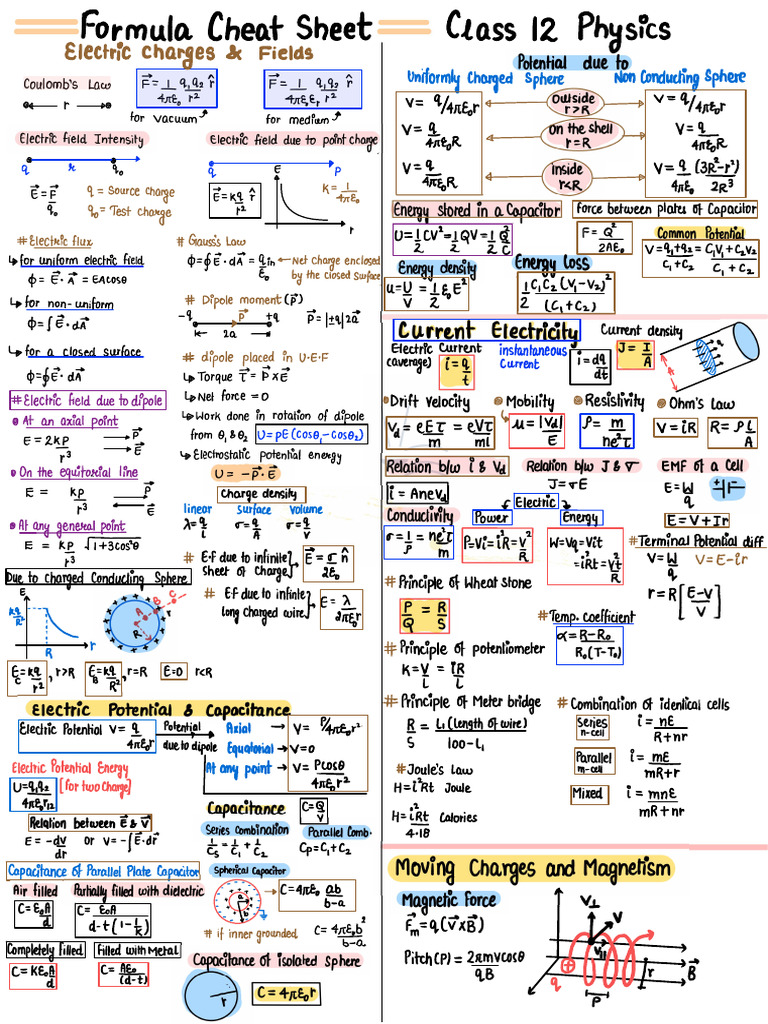 Formula Cheat Sheet — Class 12 Physics
Electric Charges & Fields
Coulomb's Law
r
F⃗ = 1/4πε₀ q₁q₂/r² r̂
for vacuum
F⃗ = 1/4πε₀εr q₁q₂/r² r̂
for medium
Electric field Intensity
q r q₀
E⃗ = F⃗/q₀
q = Source charge
q₀ = Test charge
Electric field due to point charge
q P
E⃗ = kq/r² r̂
E
r
K = 1/4πε₀
# Electric flux
↳ for uniform electric field
ϕ = E⃗·A⃗ = EAcosθ
↳ for non-uniform
ϕ = ∫E⃗·dA⃗
↳ for a closed surface
ϕ = ∮E⃗·dA⃗
# Gauss's Law
ϕ = ∮E⃗·dA⃗ = qin/ε₀
Net charge enclosed
by the closed Surface
# Dipole moment (p⃗)
-q p⃗ +q
2a
|p⃗| = |±q|2a
# dipole placed in U.E.F
↳ Torque τ⃗ = P⃗×E⃗
↳ Net force = 0
↳ Work done in rotation of dipole
from θ₁ & θ₂ U = pE(cosθ₁-cosθ₂)
↳ Electrostatic potential energy
U = -P⃗·E⃗
# Electric field due to dipole
At an axial point
E = 2KP/r³ P⃗ E⃗
On the equitorial line
E = KP/r³ P⃗ E⃗
At any general point
E = KP/r³ √1+3cos²θ
Charge density
linear Surface Volume
λ = q/l σ = q/A σ = q/V
# E.f due to infinite
sheet of Charge
E⃗ = σ/2ε₀ n̂
# E.f due to infinite
long charged wire
E = λ/2πε₀r
Due to charged Conducting Sphere
E
kq/R²
R
r
A B C
R
E_C = kq/r², r>R
E_B = kq/R², r=R
E=0 r<R
Electric Potential & Capacitance
Electric Potential V = q/4πε₀r
Potential
due to dipole
Axial → V = P/4πε₀r²
Equatorial → V=0
At any point → V = Pcosθ/4πε₀r²
Electric Potential Energy
U = q₁q₂/4πε₀r₁₂ (for two Charge)
Relation between E⃗ & V⃗
E = -dV/dr or V = -∫E⃗·dr⃗
Capacitance C = Q/V
Series Combination
1/Cs = 1/C₁ + 1/C₂
Parallel Comb.
Cp = C₁ + C₂
Capacitance of Parallel Plate Capacitor
Air filled
C = ε₀A/d
Partially filled with dielectric
C = ε₀A/d-t(1-1/K)
Completely filled
C = Kε₀A/d
Filled with Metal
C = Aε₀/(d-t)
Spherical Capacitor
a
b
C = 4πε₀ ab/b-a
# if inner grounded C = 4πε₀b²/b-a
Capacitance of isolated Sphere
r
C = 4πε₀r
Potential due to
Uniformly Charged Sphere Non Conducting Sphere
V = q/4πε₀r Outside r>R V = q/4πε₀r
V = q/4πε₀R On the shell r = R V = q/4πε₀R
V = q/4πε₀R Inside r<R V = q/4πε₀ (3R²-r²)/2R³
Energy stored in a Capacitor
U = 1/2 CV² = 1/2 QV = 1/2 Q²/C
force between plates of Capacitor
F = Q²/2Aε₀
Common Potential
V = q₁+q₂/C₁+C₂ = C₁V₁+C₂V₂/C₁+C₂
Energy density
u = U/V = 1/2 ε₀E²
Energy loss
1/2 C₁C₂(V₁-V₂)²/(C₁+C₂)
Current Electricity
Electric Current
(average)
i = q/t
instantaneous
Current
i = dq/dt
Current density
J = I/A
A
Drift velocity
Vd = eEτ/m = eVτ/ml
Mobility
μ = |Vd|/E
Resistivity
ρ = m/ne²τ
Ohm's Law
V = iR R = ρL/A
Relation b/w i & Vd
i = AneVd
Relation b/w J & σ
J = σE
EMF of a Cell
E = W/q
+ -
E = V+Ir
Conducticity
σ = 1/ρ = ne²τ/m
Electric
Power
P=Vi=i²R=V²/R
Energy
W=Vq=Vit
=i²Rt=V²t/R
# Terminal Potential diff
V = W/q V = E-ir
r = R[E-V/V]
# Principle of Wheat stone
P/Q = R/S
# Temp. coefficient
α = R-R₀/R₀(T-T₀)
# Principle of potentiometer
K = V/L = iR/L
# Principle of Meter bridge
R/S = L₁(length of wire)/100-L₁
# Joule's Law
H = i²Rt Joule
H = i²Rt/4.18 Calories
# Combination of identical cells
Series
n-cell
i = nE/R+nr
Parallel
m-cell
i = mE/mR+r
Mixed
i = mnE/mR+nr
Moving Charges and Magnetism
Magnetic Force
F⃗m = q(V⃗×B⃗)
Pitch(P) = 2πmvcosθ/qB
V⊥
V
V∥
q
P
r
B⃗